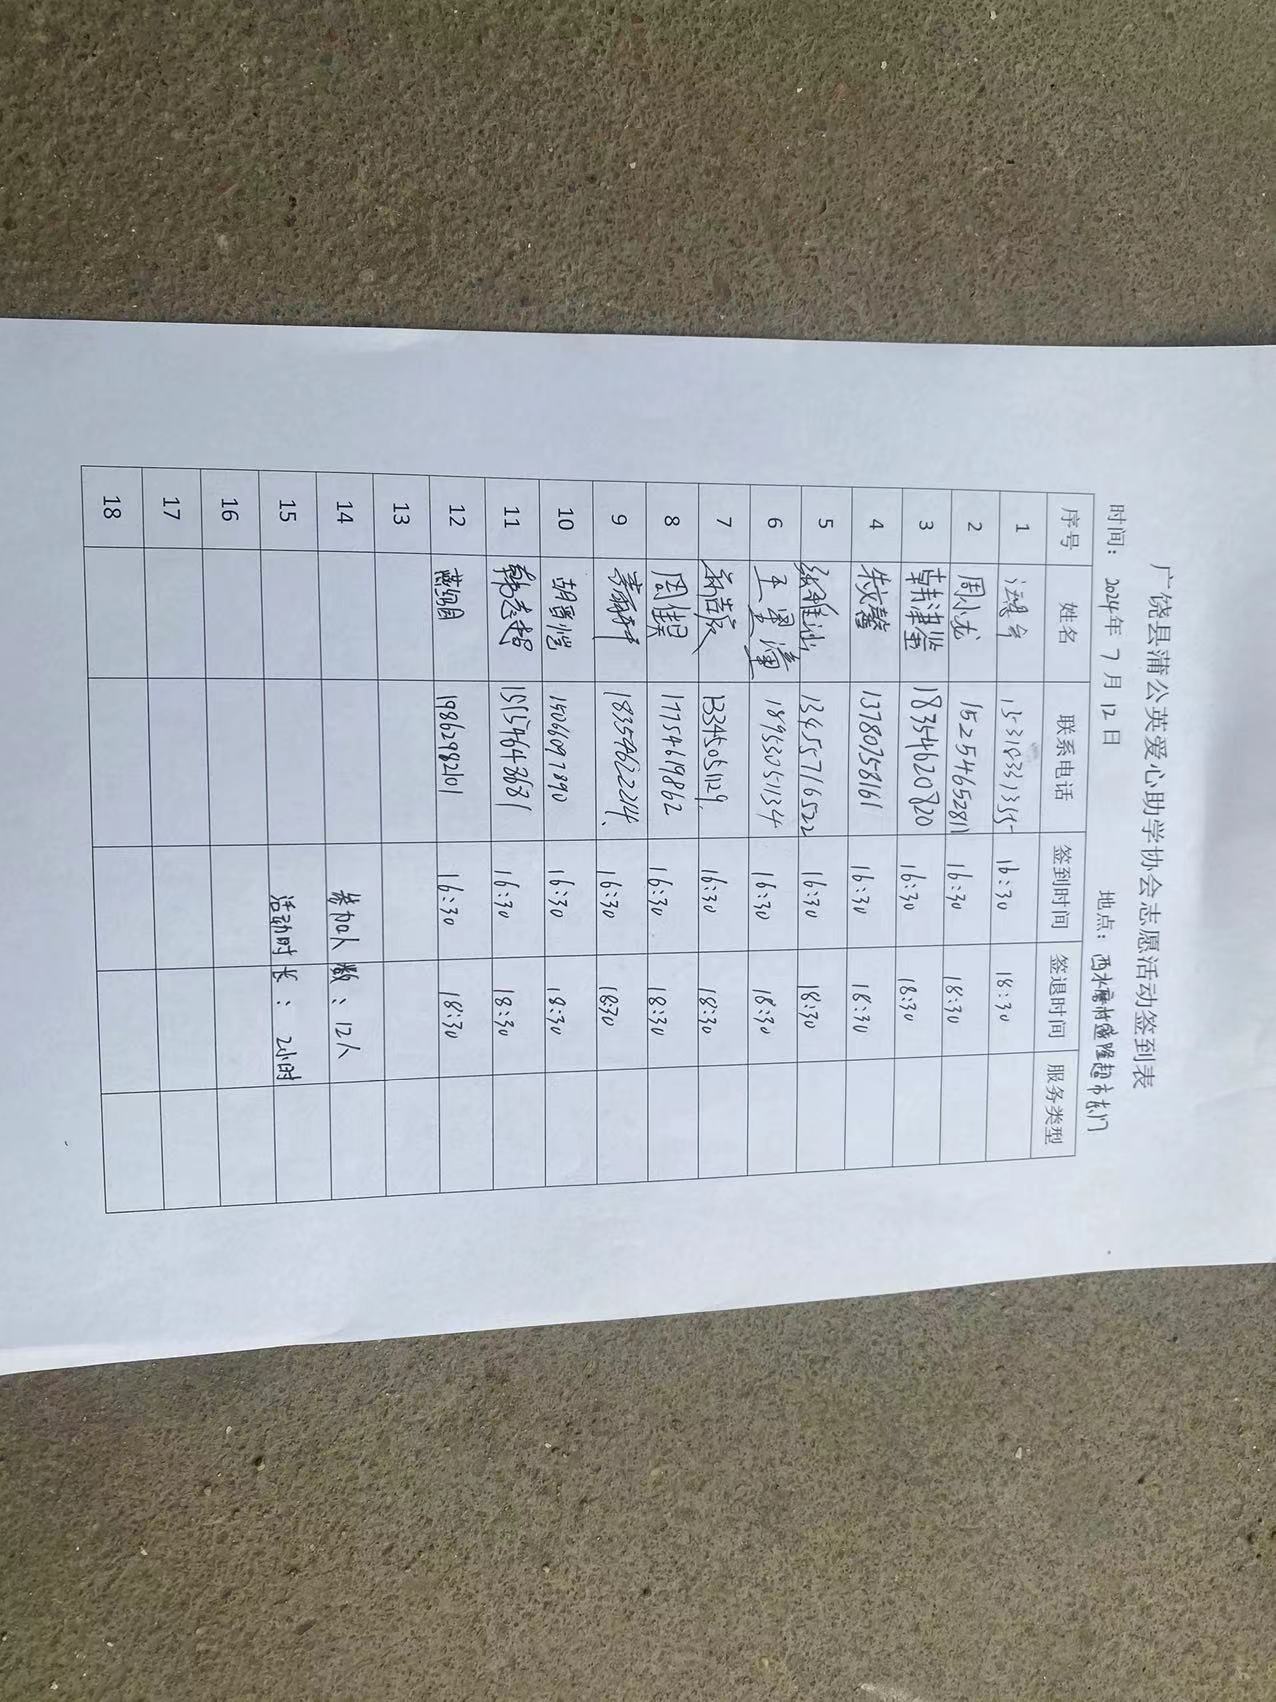 广饶县蒲公英爱心助学协会志愿活动签到表
时间：2024年 7 月 12 日 地点：西水磨村盛隆超市东门
序号 姓名 联系电话 签到时间 签退时间 服务类型
1 16:30 18:30
2 周小龙 15254652811 16:30 18:30
3 韩津鉴 18354620820 16:30 18:30
4 朱文馨 13780758161 16:30 18:30
5 13455716522 16:30 18:30
6 王星潼 18953051134 16:30 18:30
7 13345051129 16:30 18:30
8 周佳祺 17754619862 16:30 18:30
9 18354622214 16:30 18:30
10 胡晋恺 15066097890 16:30 18:30
11 韩志超 16:30 18:30
12 19862982101 16:30 18:30
13
14 参加人数：12人
15 活动时长：2小时
16
17
18